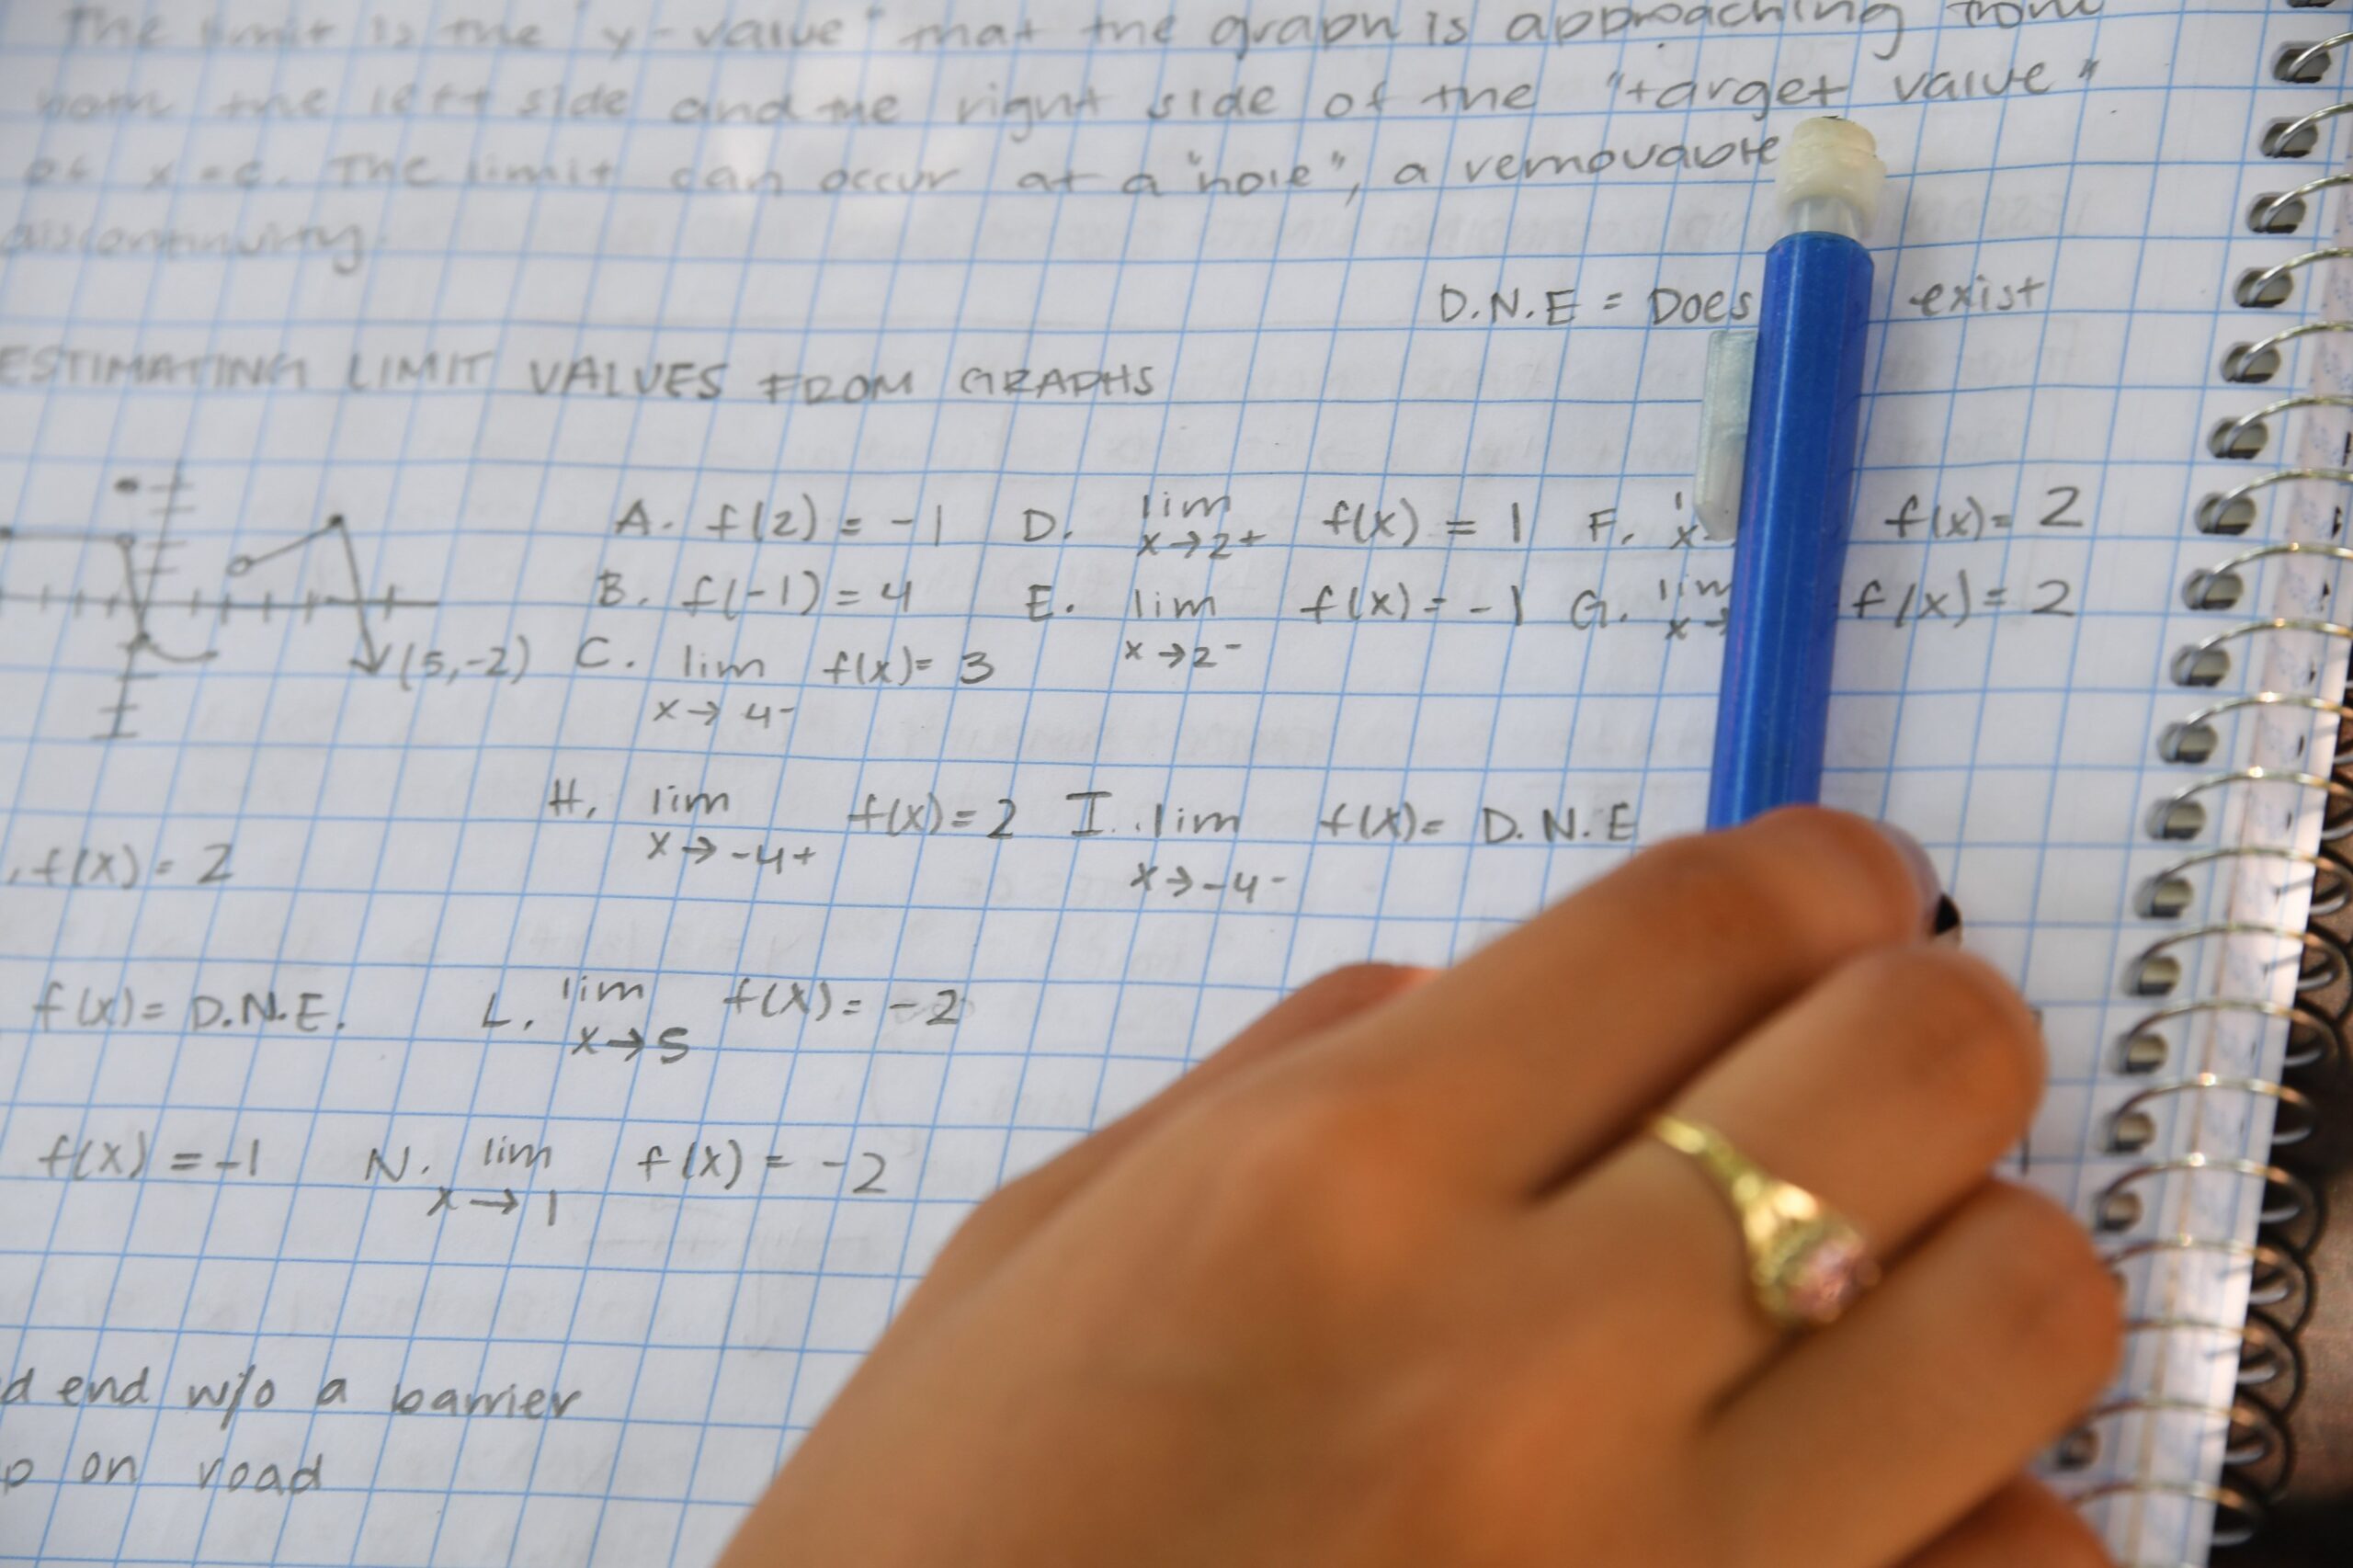 The limit is the "y-value" that the graph is approaching from
both the left side and the right side of the "target value"
of x=c. The limit can occur at a "hole", a removable
discontinuity.
D.N.E = Does exist
ESTIMATING LIMIT VALUES FROM GRAPHS
A. f(2) = -1 D. lim x→2+ f(x) = 1 F. x f(x)= 2
B. f(-1) = 4 E. lim x→2- f(x) = -1 G. lim x→ f(x) = 2
(5,-2) C. lim x→4- f(x)= 3
H. lim x→-4+ f(x)=2 I. lim x→-4- f(x)= D.N.E
f(x)= 2
f(x)= D.N.E. L. lim x→5 f(x)= -2
f(x) = -1 N. lim x→1 f(x) = -2
d end w/o a barrier
on road